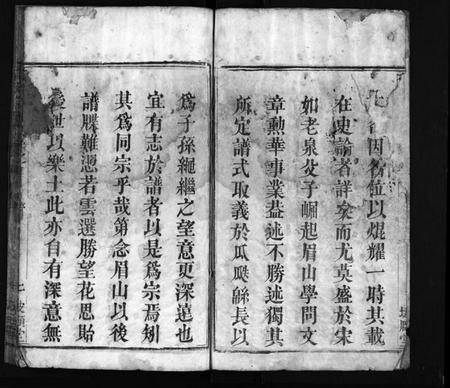 因名位以焜耀一時其載
在史諭者詳矣而尤莫盛於宋
如老泉父子崛起眉山學問文
章勲華事業葢述不勝述獨其
所定譜式取義於瓜瓞緜長以
為子孫繩繼之望意更深遠也
宜有志於譜者以是為宗焉矧
其為同宗乎哉第念眉山以後
譜牒難憑若雲選勝望花思貽
世以樂土此亦自有深意無